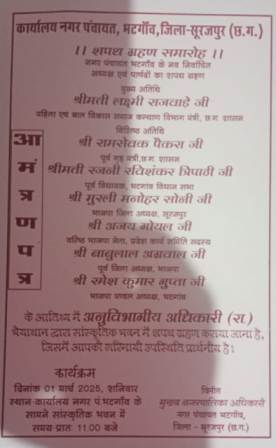 कार्यालय नगर पंचायत, भटगाँव, जिला-सूरजपुर (छ.ग.)
।। शपथ ग्रहण समारोह ।।
नगर पंचायत भटगाँव के नव निर्वाचित
अध्यक्ष एवं पार्षदों का शपथ ग्रहण
मुख्य अतिथि
श्रीमती लक्ष्मी राजवाड़े जी
महिला एवं बाल विकास समाज कल्याण विभाग मंत्री, छ.ग. शासन
विशिष्ठ अतिथि
श्री रामसेवक पैकरा जी
पूर्व गृह मंत्री,छ.ग. शासन
श्रीमती रजनी रविशंकर त्रिपाठी जी
पूर्व विधायक, भटगांव विधान सभा
श्री मुरली मनोहर सोनी जी
भाजपा जिला अध्यक्ष, सूरजपुर
श्री अजय गोयल जी
वरिष्ठ भाजपा नेता, प्रदेश कार्य समिति सदस्य
श्री बाबूलाल अग्रवाल जी
पूर्व जिला अध्यक्ष, भाजपा
श्री रमेश कुमार गुप्ता जी
भाजपा मण्डल अध्यक्ष, भटगांव
आ
मं
त्र
ण
प
त्र
के आतिथ्य में अनुविभागीय अधिकारी (रा.)
भैयाथान द्वारा सांस्कृतिक भवन में शपथ ग्रहण कराया जाना है,
जिसमें आपकी गरिमामयी उपस्थिति प्रार्थनीय है।
कार्यक्रम
दिनांक 01 मार्च 2025, शनिवार
स्थान-कार्यालय नगर पं भटगाँव के
सामने सांस्कृतिक भवन में
समय-प्रातः 11:00 बजे
विनीत
मुख्य नगरपालिका अधिकारी
नगर पंचायत भटगाँव,
जिला - सूरजपुर (छ.ग.)